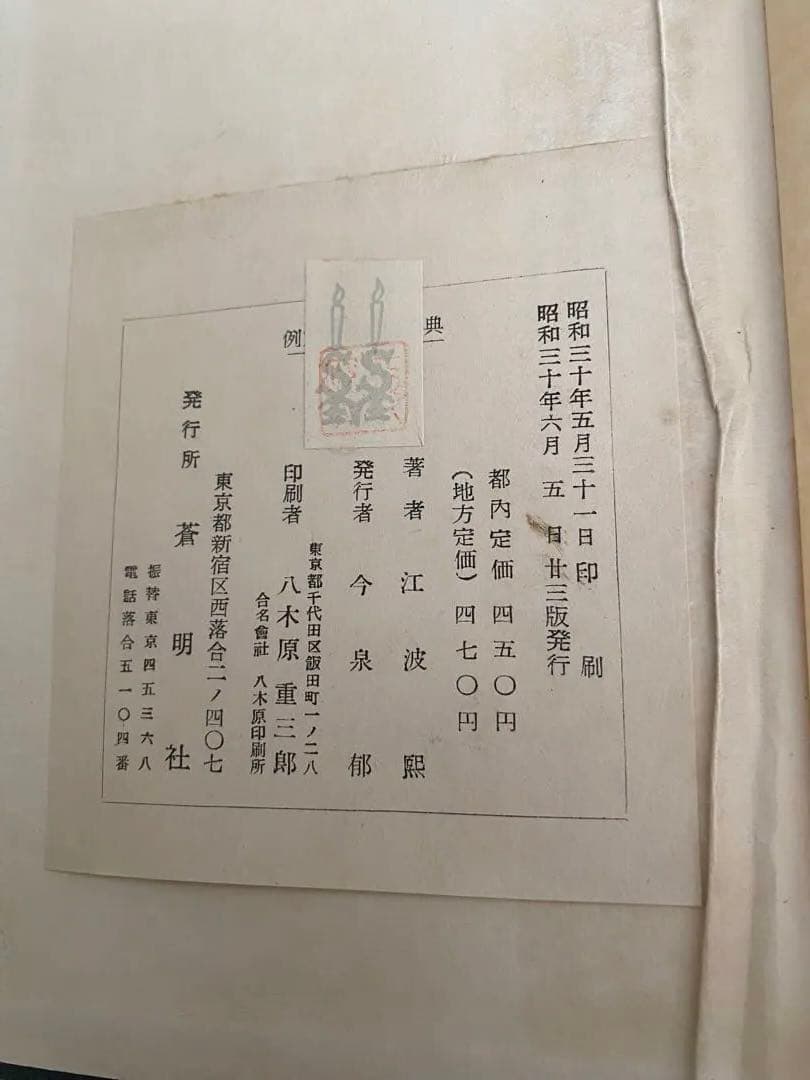 昭和三十年五月三十一日印刷
昭和三十年六月五日廿三版発行
都内定価 四五〇円
(地方定価) 四七〇円
典
例
著者 江波熙
発行者 今泉郁
東京都千代田区飯田町一ノ二八
印刷者 八木原重三郎
合名會社 八木原印刷所
東京都新宿区西落合二ノ四〇七
発行所 蒼明社
振替東京四五三六八
電話落合五一〇四番